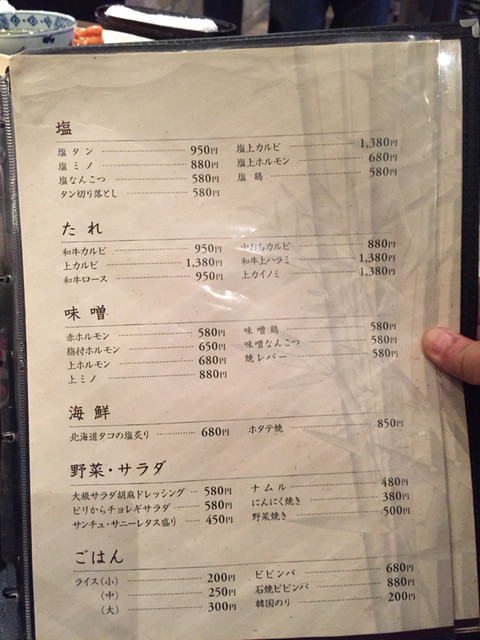 塩
塩タン 950円
塩ミノ 880円
塩なんこつ 580円
タン切り落とし 580円
塩上カルビ 1,380円
塩上ホルモン 680円
塩鶏 580円
たれ
和牛カルビ 950円
上カルビ 1,380円
和牛ロース 950円
中おちカルビ 880円
和牛上ハラミ 1,380円
上カイノミ 1,380円
味噌
赤ホルモン 580円
脂付ホルモン 650円
上ホルモン 680円
上ミノ 880円
味噌鶏 580円
味噌なんこつ 580円
焼レバー 580円
海鮮
北海道タコの塩炙り 680円
ホタテ焼 850円
野菜・サラダ
大根サラダ胡麻ドレッシング 580円
ピリからチョレギサラダ 580円
サンチュ・サニーレタス盛り 450円
ナムル 480円
にんにく焼き 380円
野菜焼き 500円
ごはん
ライス(小) 200円
(中) 250円
(大) 300円
ビビンバ 680円
石焼ビビンバ 880円
韓国のり 200円